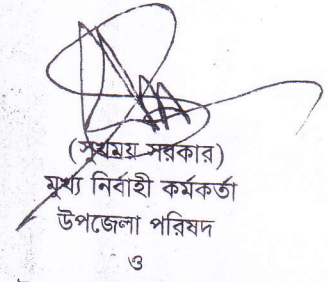 (সুখময় সরকার)
মুখ্য নির্বাহী কর্মকর্তা
উপজেলা পরিষদ
ও